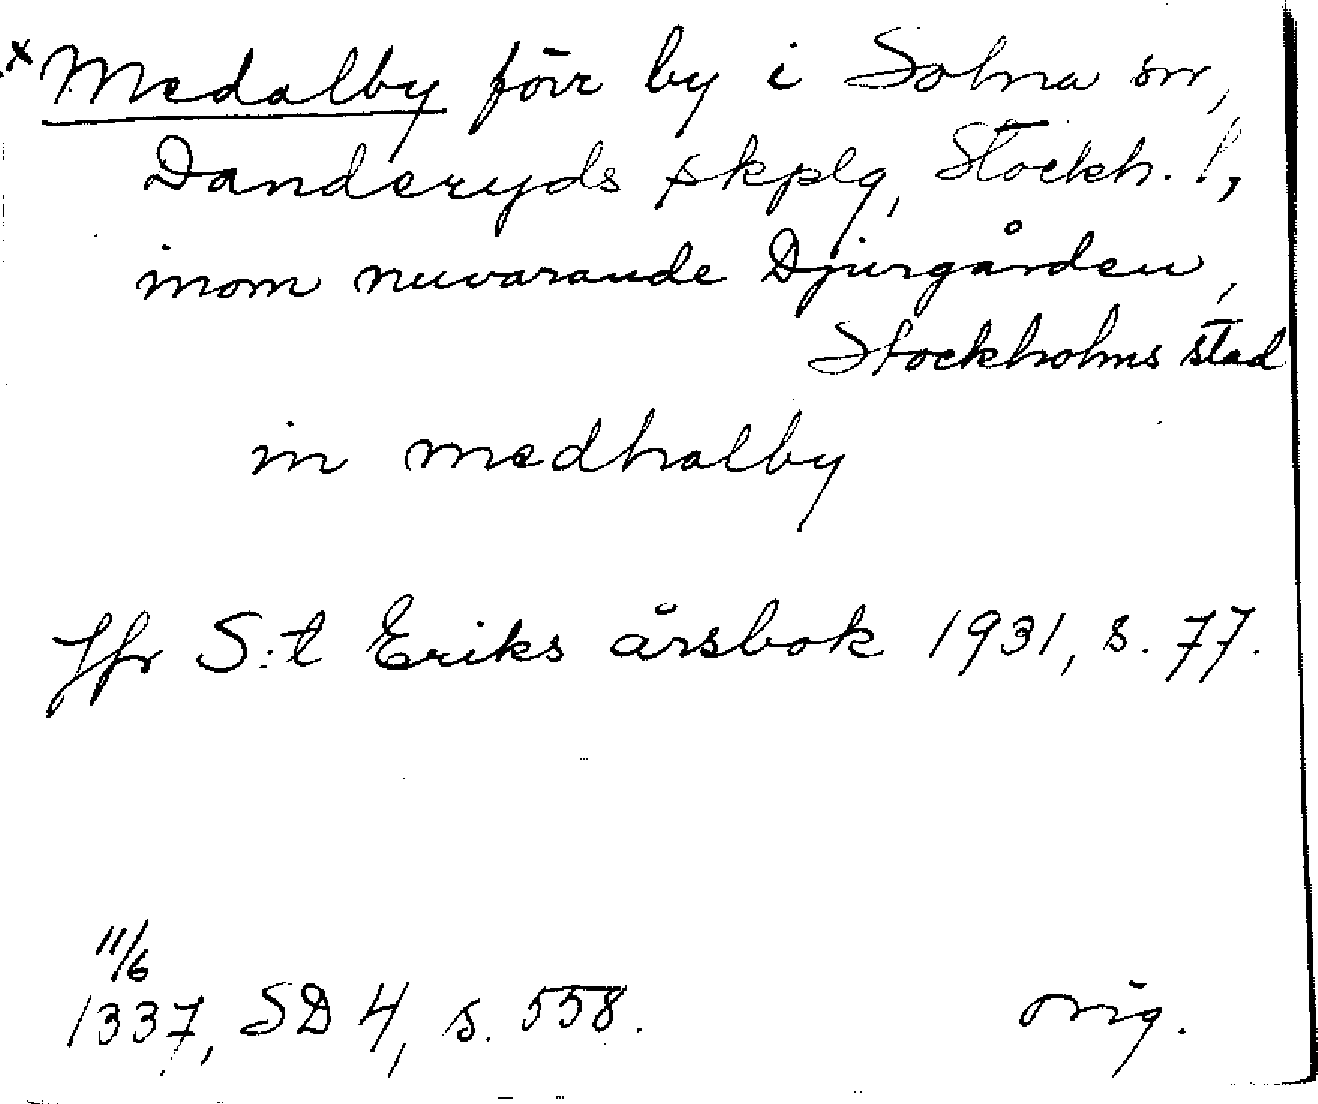 x Medalby förr by i Solna sn,
Danderyds skplg, Stockh. l,
inom nuvarande Djurgården,
Stockholms stad
in medhalby
Jfr S:t Eriks årsbok 1931, s. 77.
11/6
1337, SD 4, s. 558. orig.